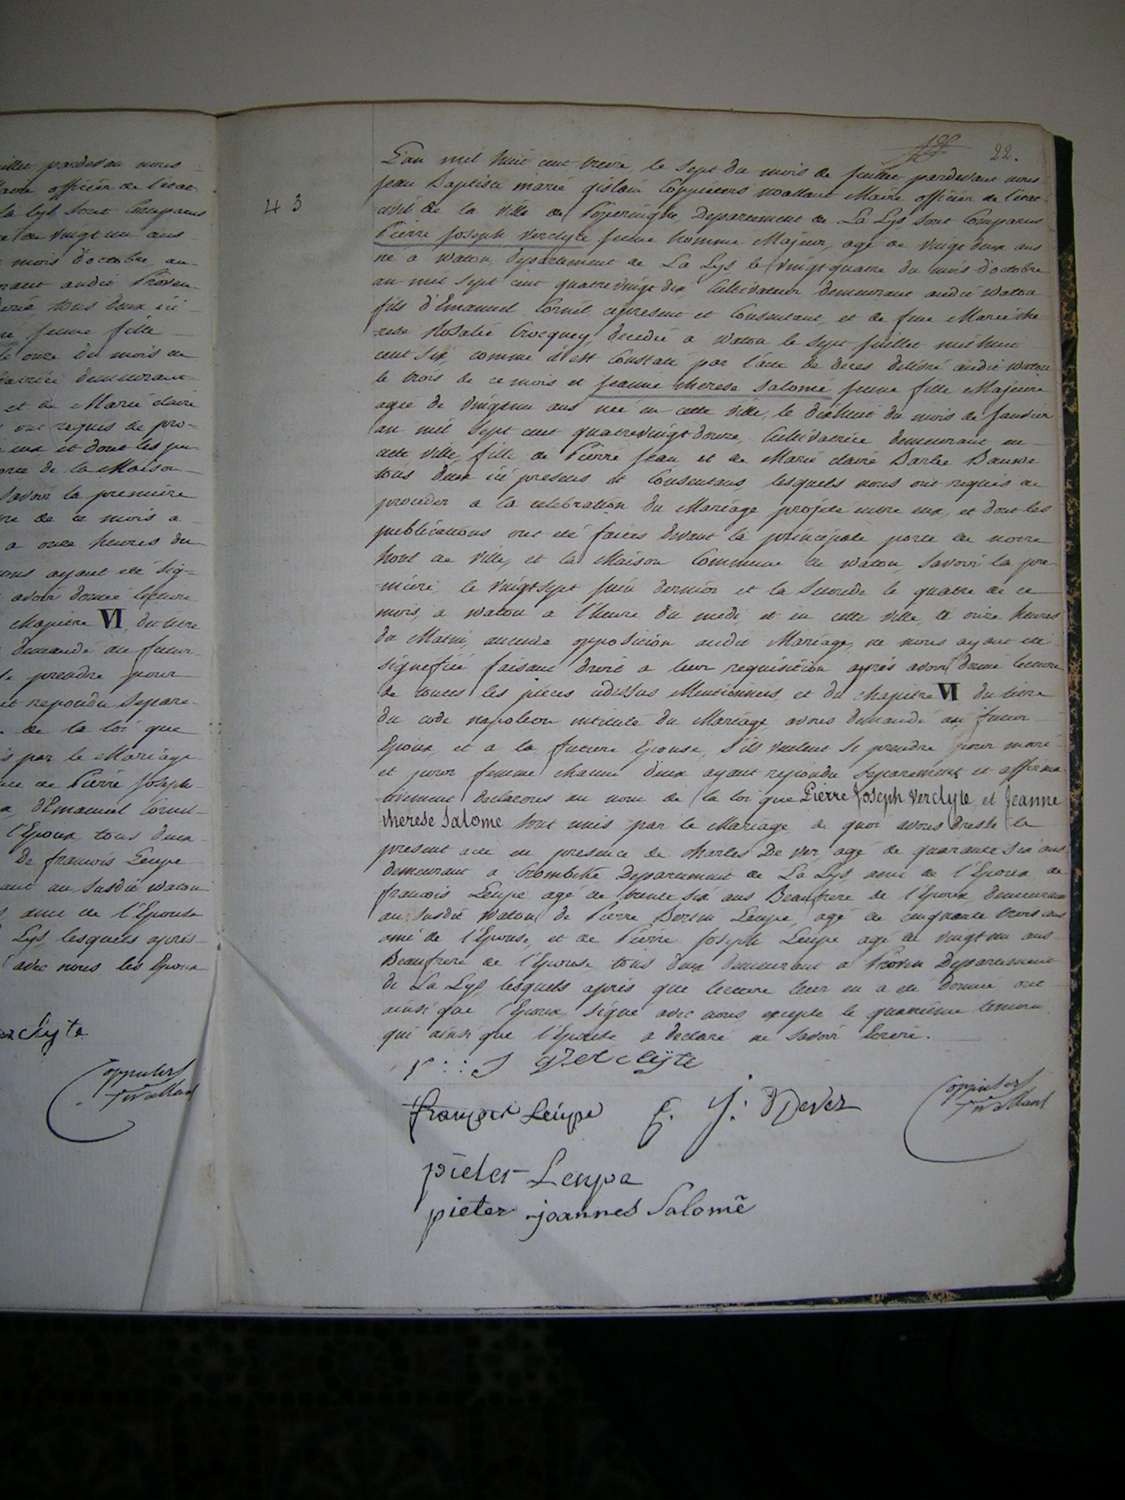 illet pardevant nous
Maire officier de l'état
la Lys sont Comparus
vingt un ans
mois d'octobre au
tous deux ici
jeune fille
le onze du mois de
demeurant
et de Marie claire
ont requis de pro-
eux et dont les pu-
porte de la Maison
Savoir la premiere
de ce mois a
a onze heures du
ayant été sig-
avoir donné lecture
chapitre VI du livre
demandé au futur
se prendre pour
et repondu separe-
de la loi que
par le Mariage
de Pierre Joseph
d'Emanuel Cornil
l'Epoux tous deux
De francois Leupe
au susdit watou
ami de l'Epouse
Lys, lesquels après
avec nous les Epoux
verclyte
Coppieters
Twallant
22.
43
L'an mil huit cent treize, le sept du mois de Juillet pardevant nous
Jean Baptiste marie gislain Coppieters wallant Maire officier de l'état
civil de la ville de Poperinghe Departement de La Lys sont Comparus
Pierre Joseph Verclyte jeune homme Majeur, agé de vingt deux ans
né a watou departement de La Lys le vingt quatre du mois d'octobre
an mil sept cent quatre vingt dix Cultivateur demeurant audit watou
fils d'Emanuel Cornil cipresent et Consentant, et de feue Marie the-
rese Rosalie Crocquey decedée a watou le sept juillet mil huit
cent six, comme il est Constaté par l'acte de deces delivré audit watou
le trois de ce mois et jeanne therese Salomé jeune fille Majeure
agee de vingt un ans née en cette ville, le dixhuit du mois de Janvier
an mil sept cent quatre vingt douze, Cultivatrice demeurant en
cette ville fille de Pierre Jean et de Marie claire Barbe Bauwe
tous deux ici presens et Consentans lesquels nous ont requis de
proceder a la celebration du Mariage projeté entre eux, et dont les
publications ont été faites devant la principale porte de notre
hotel de ville, et la Maison Commune de watou, Savoir la pre-
miere, le vingt sept juin dernier et la Seconde le quatre de ce
mois, a watou a l'heure du midi, et en cette ville, a onze heures
du Matin, aucune opposition audit Mariage, ne nous ayant été
signifiée faisant droit a leur requisition après avoir donné lecture
de toutes les pièces cidessus Mentionnées et du chapitre VI du livre
du code napoleon intitulé du Mariage avons demandé au futur
Epoux et a la future Epouse, s'ils veulent se prendre pour mari
et pour femme chacun d'eux ayant repondu separement et affirma-
tivement declarons au nom de la loi que Pierre Joseph verclyte, et Jeanne
therese Salomé sont unis par le Mariage de quoi avons dressé le
present acte en presence de charles De ver, agé de quarante six ans
demeurant a Crombeke Departement de La Lys ami de l'Epoux de
francois Leupe agé de trente six ans Beaufrere de l'Epoux demeurant
au susdit watou, de Pierre Leupe, agé de cinquante trois ans
ami de l'Epouse, et de Pierre Joseph Leupe agé de vingt un ans
Beaufrere de l'Epouse tous deux demeurant a Proven Departement
de La Lys, lesquels après que lecture leur en a été donnée ont
ainsi que l'Epoux, signé avec nous excepté le quatrième temoin
qui ainsi que l'Epouse a declaré ne savoir Ecrire.
verclyte
françois Leupe
C. J: DeVer
Coppieters
Twallant
pieter Leupe
pieter joannes Salomé